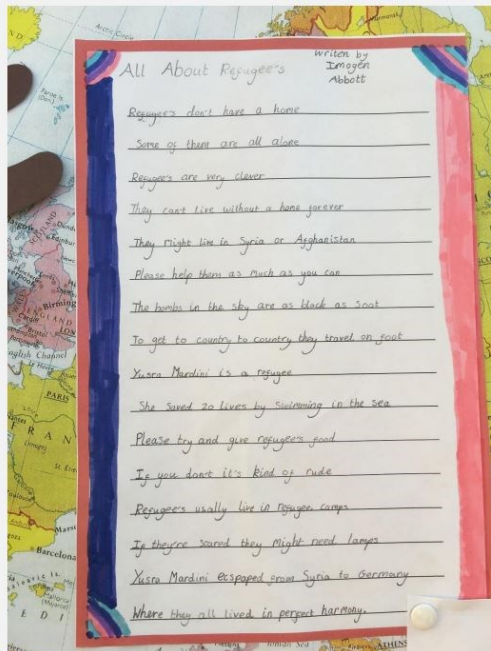 All About Refugee's
Writen by
Imogen
Abbott
Refugee's don't have a home
Some of them are all alone
Refugee's are very clever
They can't live without a home forever
They might live in Syria or Afghanistan
Please help them as much as you can
The bombs in the sky are as black as soot
To get to country to country they travel on foot
Yusra Mardini is a refugee
She saved 20 lives by swimming in the sea
Please try and give refugee's food
If you don't it's kind of rude
Refugee's usally live in refugee camps
If they're scared they might need lamps
Yusra Mardini ecspaped from Syria to Germany
Where they all lived in perfect harmony.
Arctic Circle
SCOTLAND
Birming
ENGLAND
Cardiff
Bristol
LON
nglish Channel
PARIS
FRAN
Barcelona
Mallorca
(Majorca)
EDI
Ionian Sea
ATHENS